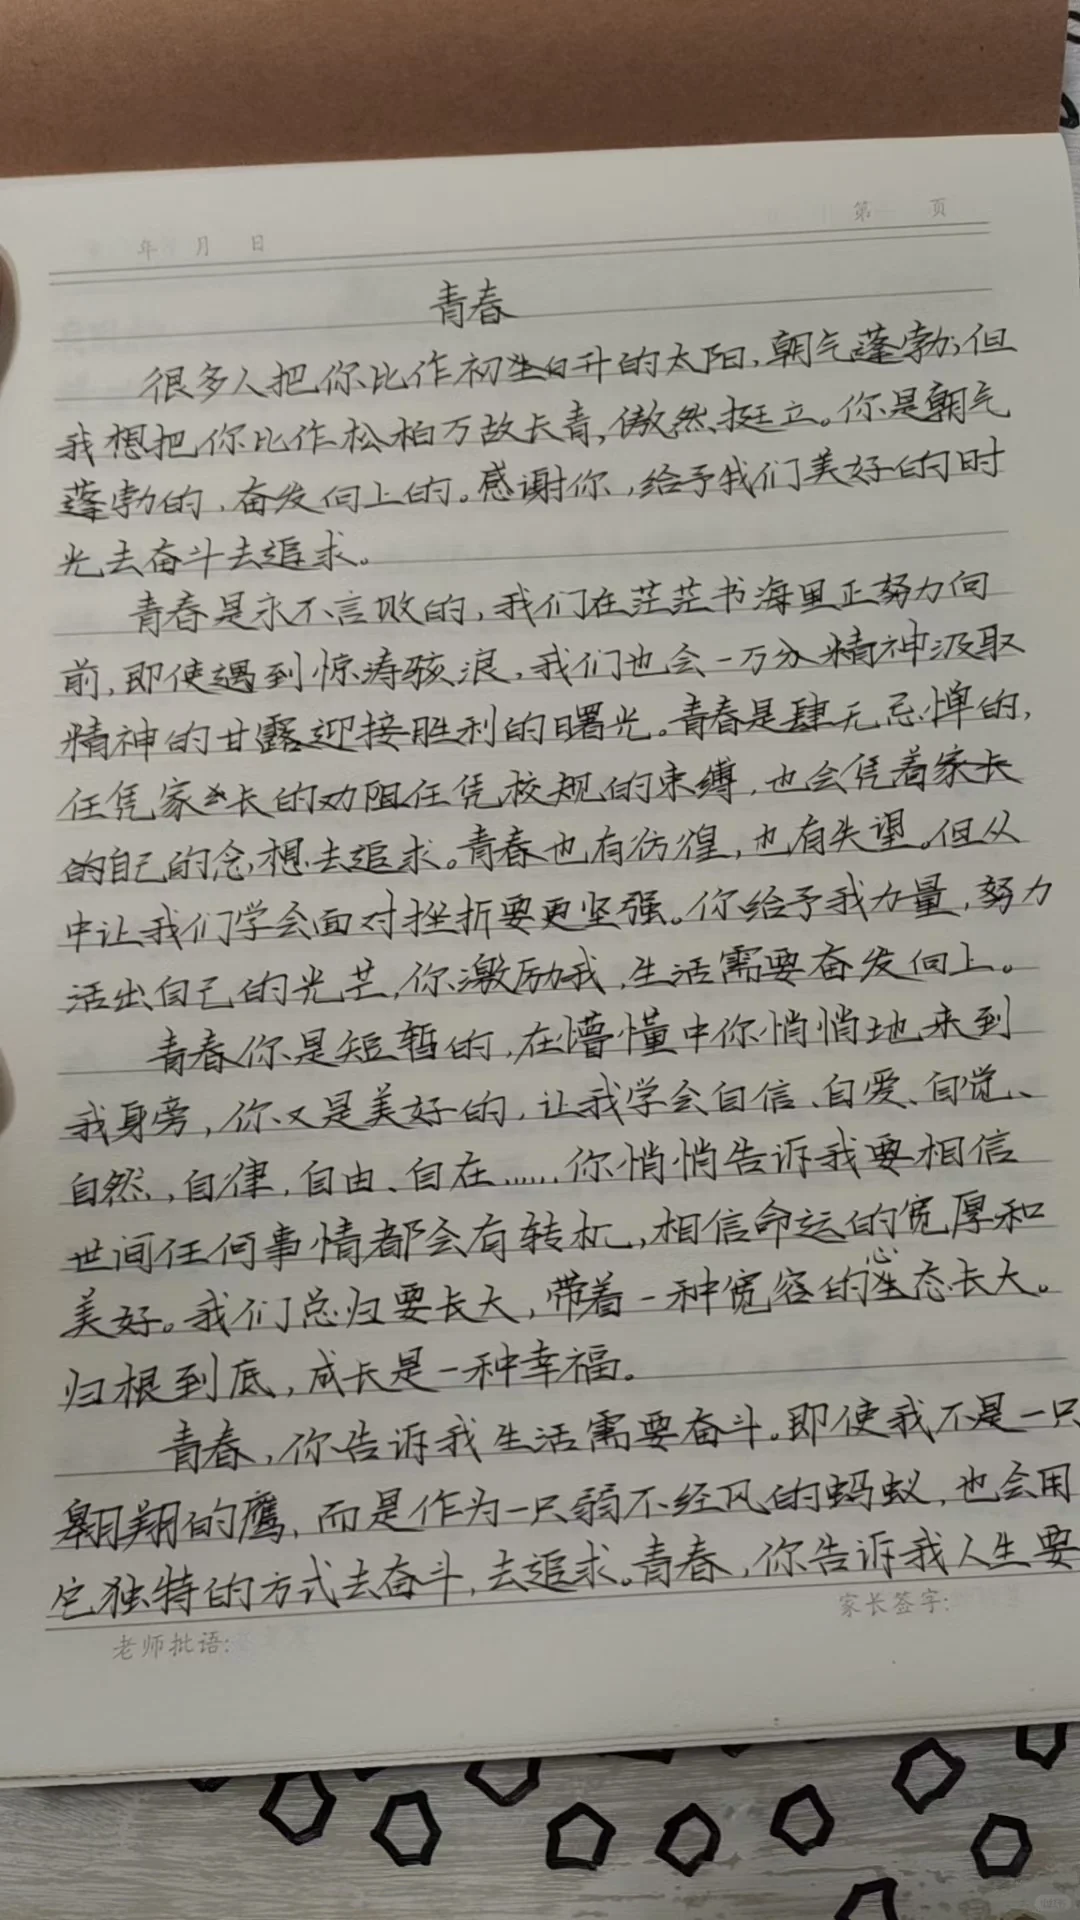 年 月 日
第 页
青春
很多人把你比作初升的太阳,朝气蓬勃,但
我想把你比作松柏万故长青,傲然挺立。你是朝气
蓬勃的,奋发向上的。感谢你,给予我们美好的时
光去奋斗去追求。
青春是永不言败的,我们在茫茫书海里正努力向
前,即使遇到惊涛骇浪,我们也会一万分精神汲取
精神的甘露迎接胜利的曙光。青春是肆无忌惮的,
任凭家长的劝阻任凭校规的束缚,也会凭着家长
的自己的念想去追求。青春也有彷徨,也有失望。但从
中让我们学会面对挫折要更坚强。你给予我力量,努力
活出自己的光芒,你激励我,生活需要奋发向上。
青春你是短暂的,在懵懂中你悄悄地来到
我身旁,你又是美好的,让我学会自信、自爱、自觉、
自然,自律,自由、自在……你悄悄告诉我要相信
世间任何事情都会有转机,相信命运的宽厚和
美好。我们总归要长大,带着一种宽容的心态长大。
归根到底,成长是一种幸福。
青春,你告诉我生活需要奋斗。即使我不是一只
翱翔的鹰,而是作为一只弱不经风的蚂蚁,也会用
它独特的方式去奋斗,去追求。青春,你告诉我人生要
家长签字:
老师批语: